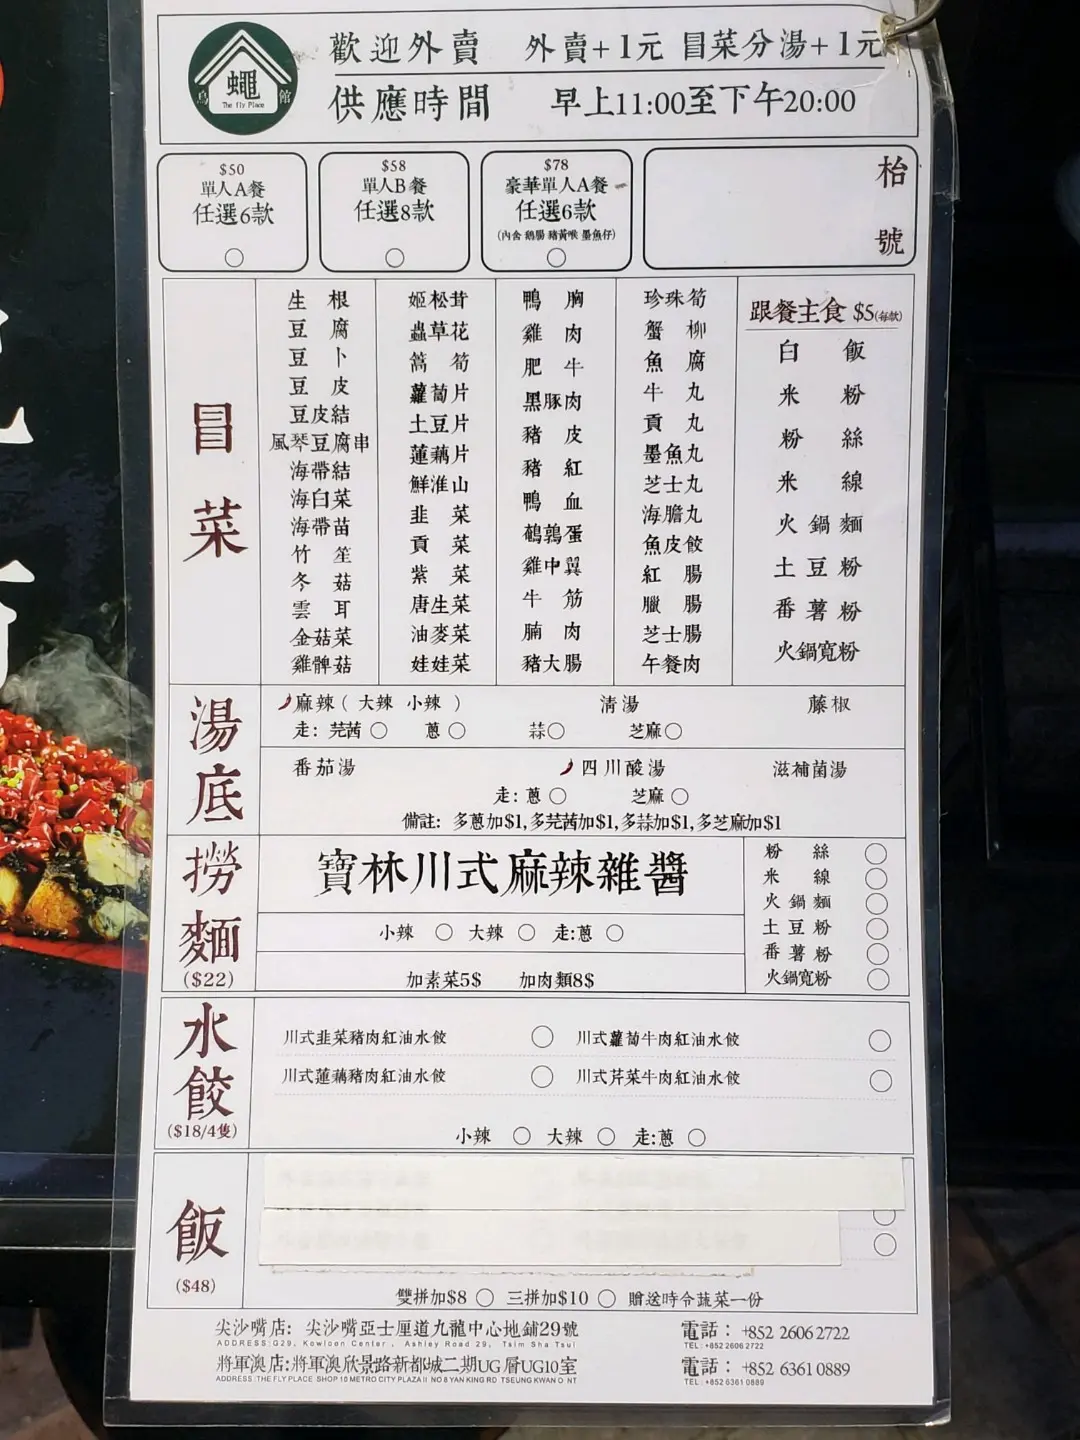 歡迎外賣 外賣+1元 冒菜分湯+1元
供應時間 早上11:00至下午20:00
蠅
The fly Place
館
$50
單人A餐
任選6款
$58
單人B餐
任選8款
$78
豪華單人A餐
任選6款
(內含 鵝腸 豬黃喉 墨魚仔)
枱號
冒菜
生根
豆腐
豆卜
豆皮
豆皮結
風琴豆腐串
海帶結
海白菜
海帶苗
竹笙
冬菇
雲耳
金菇菜
雞髀菇
姬松茸
蟲草花
萵筍
蘿蔔片
土豆片
蓮藕片
鮮淮山
韭菜
貢菜
紫菜
唐生菜
油麥菜
娃娃菜
鴨胸
雞肉
肥牛
黑豚肉
豬皮
豬紅
鴨血
鵪鶉蛋
雞中翼
牛筋
腩肉
豬大腸
珍珠筍
蟹柳
魚腐
牛丸
貢丸
墨魚丸
芝士丸
海膽丸
魚皮餃
紅腸
臘腸
芝士腸
午餐肉
跟餐主食 $5(每款)
白飯
米粉
粉絲
米線
火鍋麵
土豆粉
番薯粉
火鍋寬粉
湯底
麻辣( 大辣 小辣 ) 清湯 藤椒
走: 芫茜 ○ 蔥 ○ 蒜○ 芝麻○
番茄湯 四川酸湯 滋補菌湯
走: 蔥 ○ 芝麻 ○
備註: 多蔥加$1,多芫茜加$1,多蒜加$1,多芝麻加$1
撈麵
($22)
寶林川式麻辣雜醬
小辣 ○ 大辣 ○ 走:蔥 ○
加素菜5$ 加肉類8$
粉絲 ○
米線 ○
火鍋麵 ○
土豆粉 ○
番薯粉 ○
火鍋寬粉 ○
水餃
($18/4隻)
川式韭菜豬肉紅油水餃 ○ 川式蘿蔔牛肉紅油水餃 ○
川式蓮藕豬肉紅油水餃 ○ 川式芹菜牛肉紅油水餃 ○
小辣 ○ 大辣 ○ 走:蔥 ○
飯
($48)
雙拼加$8 ○ 三拼加$10 ○ 贈送時令蔬菜一份
尖沙嘴店: 尖沙嘴亞士厘道九龍中心地鋪29號 電話: +852 2606 2722
ADDRESS:G29, Kowloon Center, Ashley Road 29, Tsim Sha Tsui TEL:+852 2606 2722
將軍澳店:將軍澳欣景路新都城二期UG層UG10室 電話: +852 6361 0889
ADDRESS:THE FLY PLACE SHOP 10 METRO CITY PLAZA II NO 8 YAN KING RD TSEUNG KWAN O NT TEL:+852 6361 0889